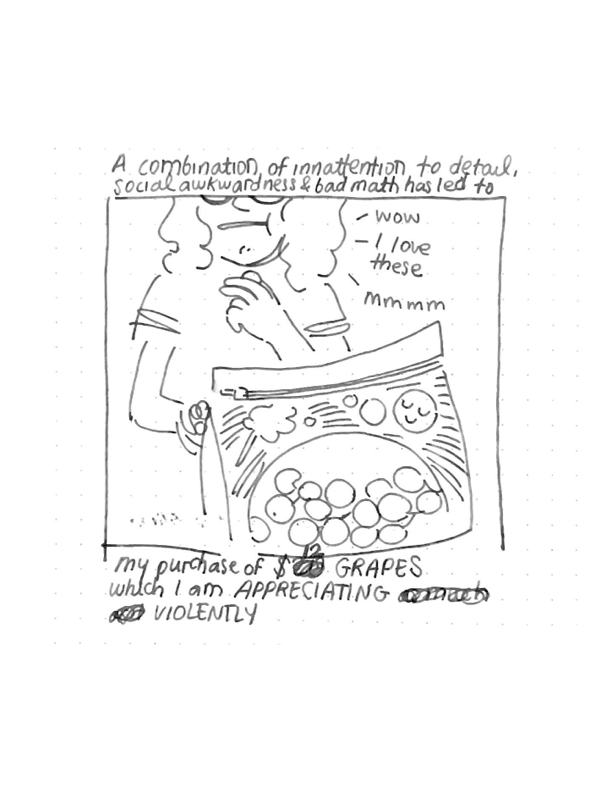 A combination of innattention to detail,
social awkwardness & bad math has led to
– wow
– I love
these
\ mmmm
my purchase of $12 GRAPES
which I am APPRECIATING
VIOLENTLY